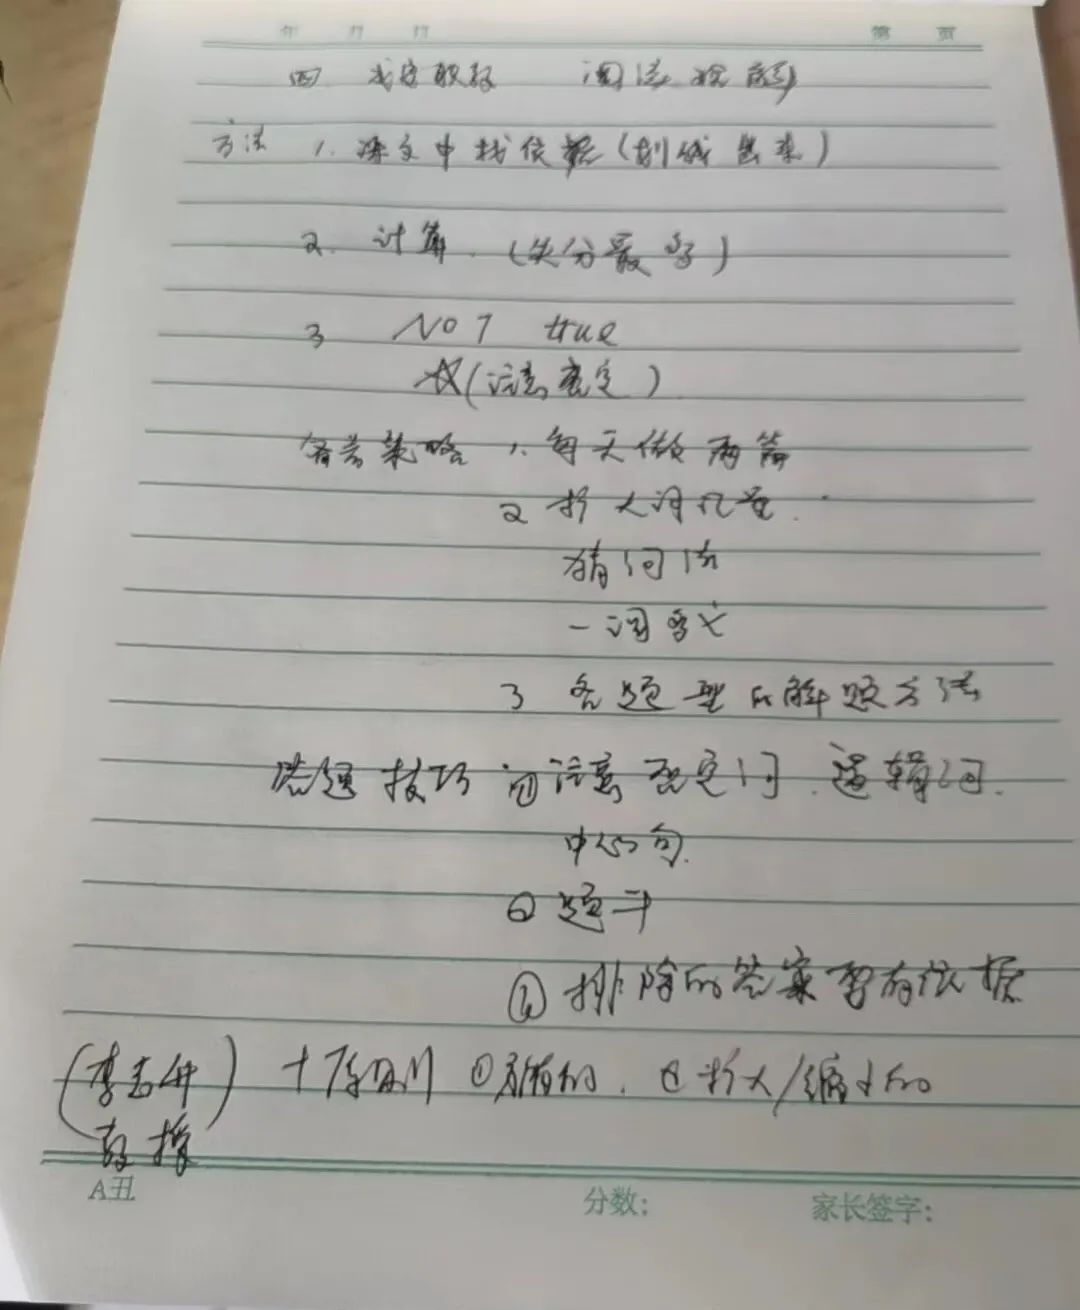 年 月 日 第 页
四
方法 1. 课文中找依据(划线出来)
2. 计算.(失分最多)
3 NOT true
(注意否定)
备考策略 1. 每天做两篇
2 扩大词汇量.
猜词法
一词多义
3 各题型的解题方法
答题技巧 ①注意否定词.逻辑词.
中心句.
② 题干
排除的答案要有依据
(李 教授) 十 原则 ① 的. ② 扩大/缩小的
A丑 分数: 家长签字: